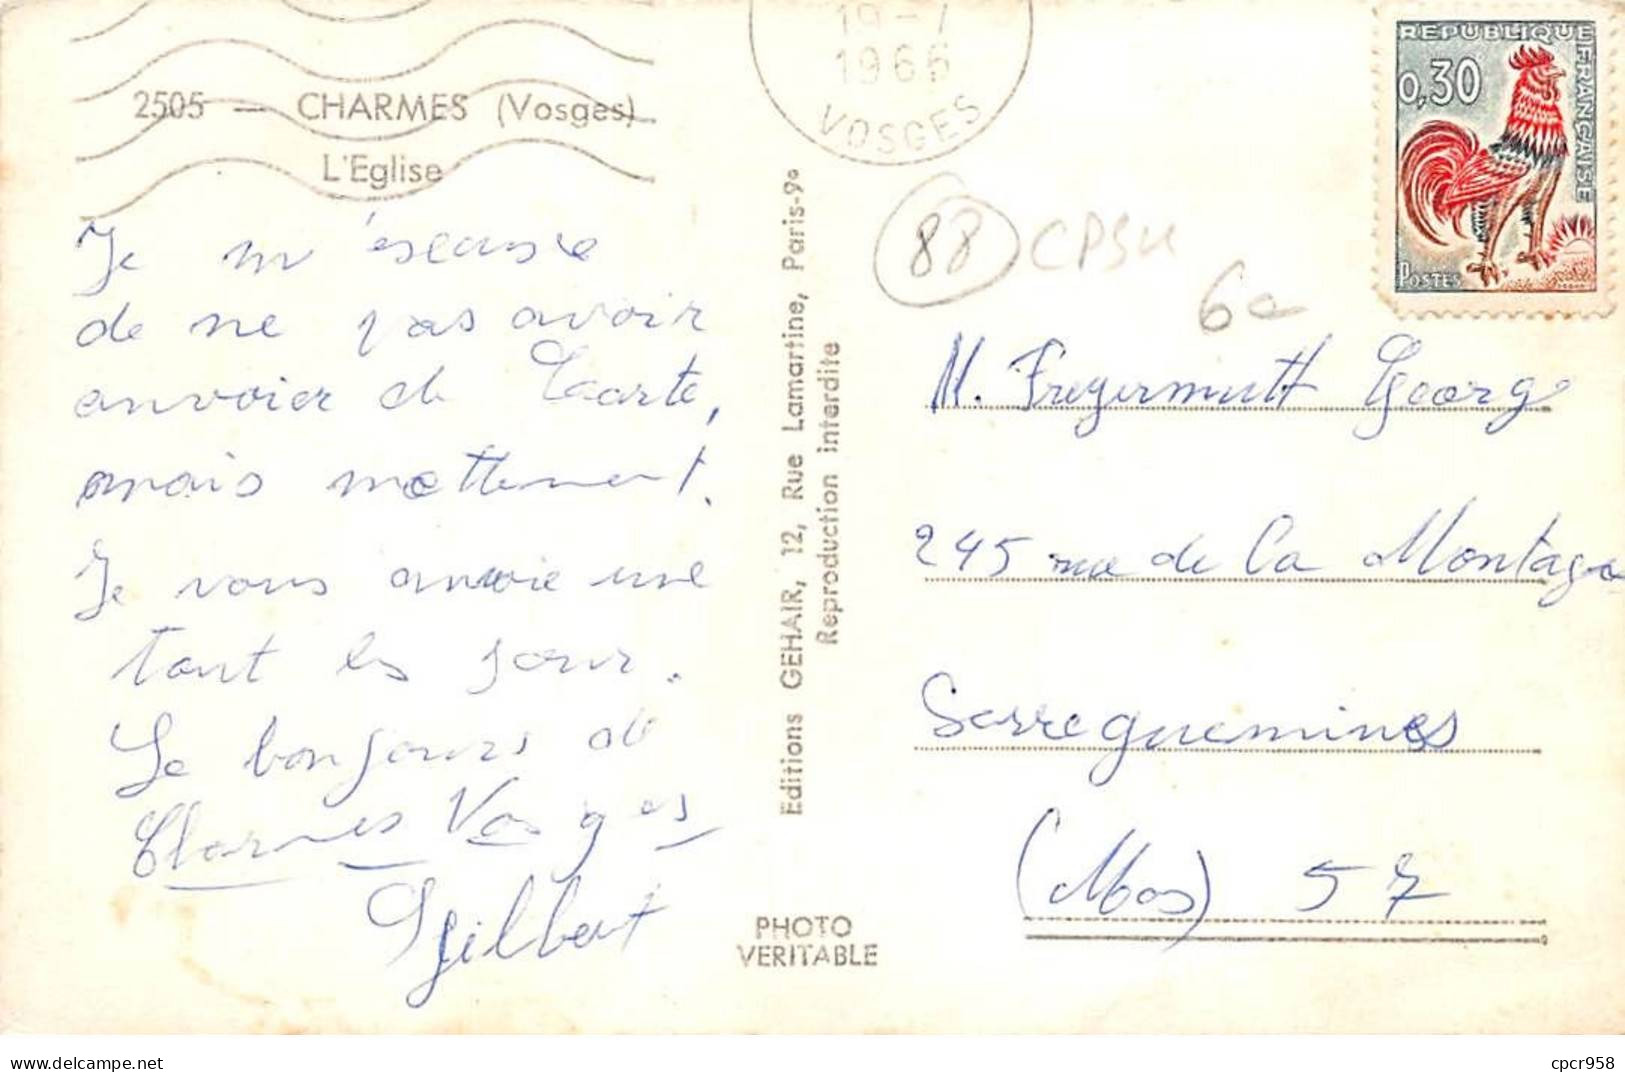 2505 — CHARMES (Vosges)
L'Eglise
19-7
1966
VOSGES
REPUBLIQUE FRANÇAISE
0,30
POSTES
88 CPSM
6e
Je m'éscuse
de ne pas avoir
anvoier de Carte,
mais mettenent.
Je vous anvoie une
tout les jour.
Le bonjours de
Charmes Vosges
Gilbert
Editions GEHAIR, 12, Rue Lamartine, Paris-9e
Reproduction interdite
PHOTO
VERITABLE
M. Freyermutt Georg
245 rue de la Montagn
Sarreguemines
(Mos) 57
cpcr958